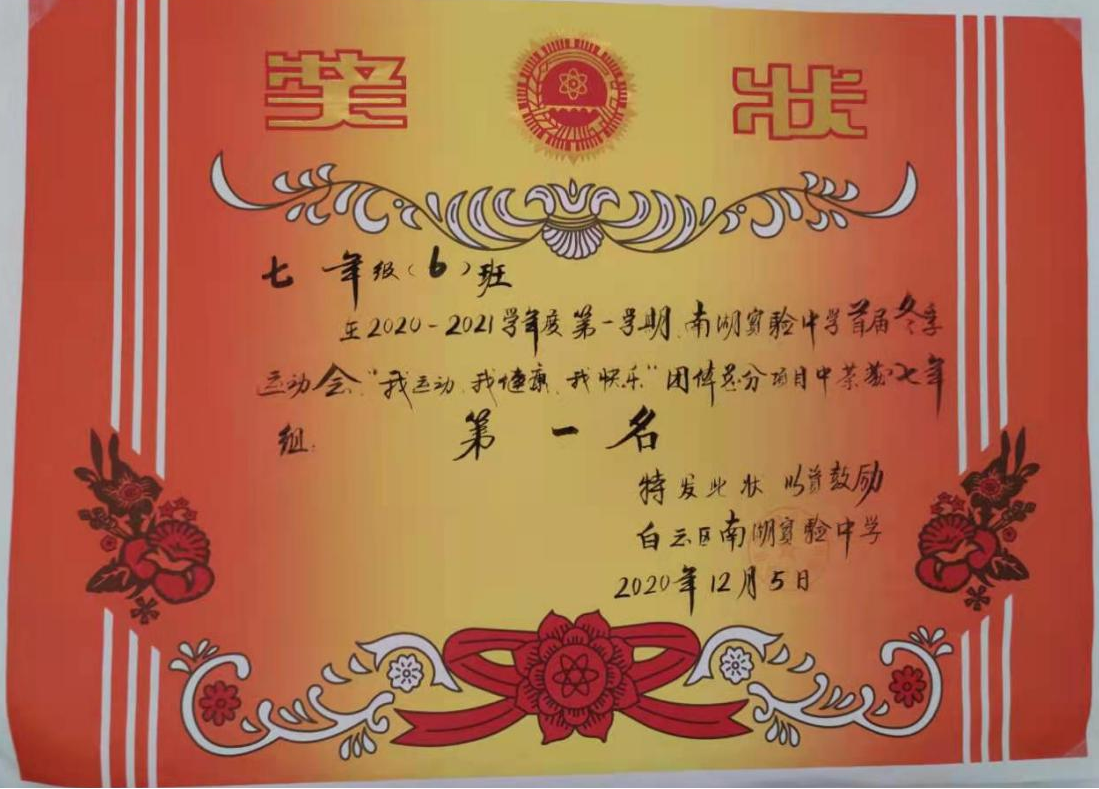 奖状
七年级(6)班
在2020-2021学年度第一学期,南湖实验中学首届冬季
运动会"我运动、我健康、我快乐"团体总分项目中荣获七年
组.
第一名
特发此状 以资鼓励
白云区南湖实验中学
2020年12月5日